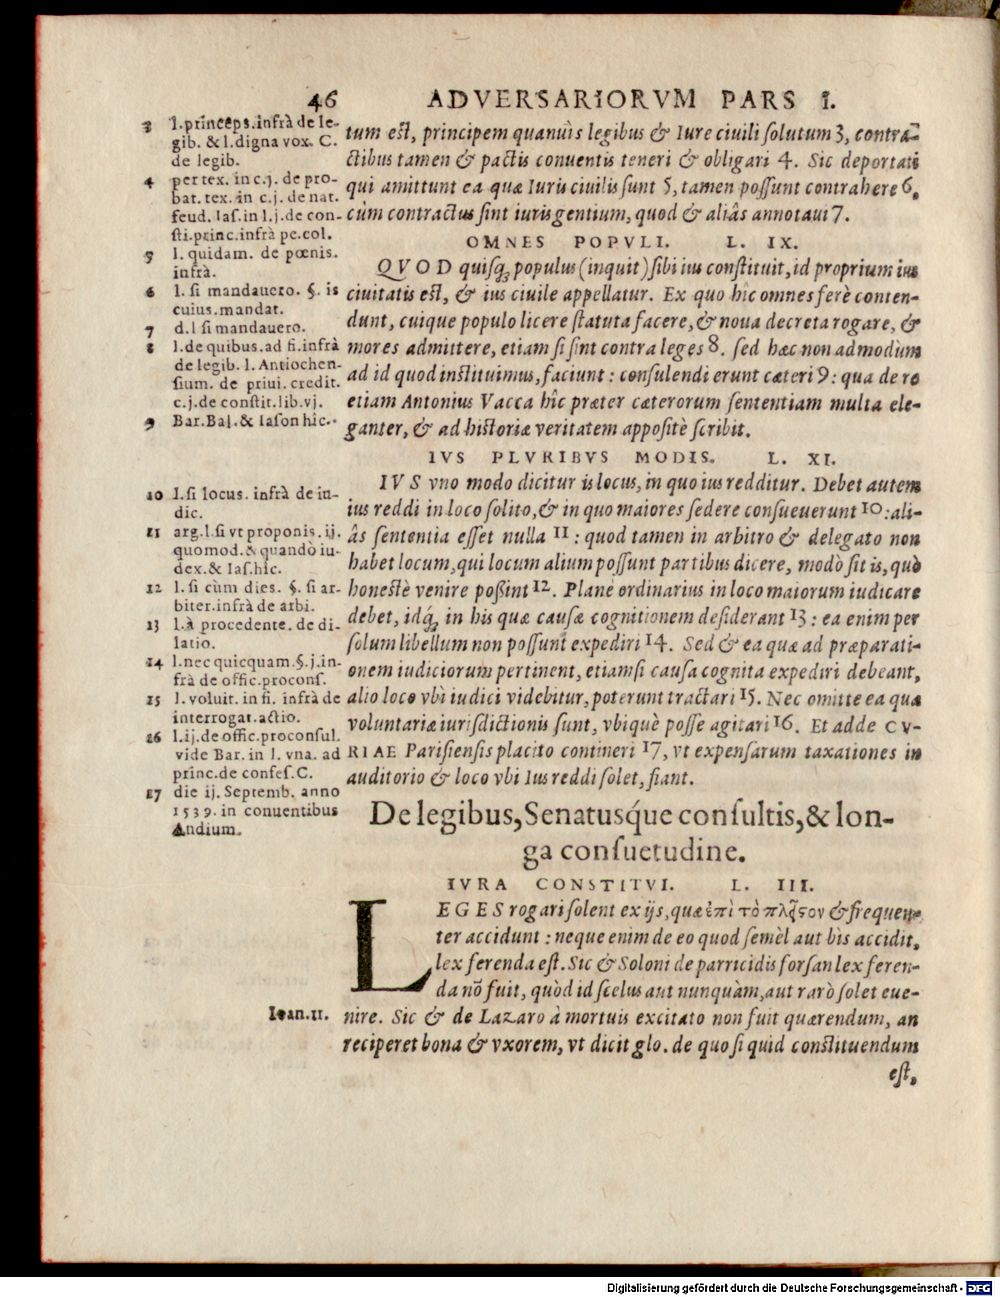 46 ADVERSARIORVM PARS I.
tum est, principem quanuis legibus & Iure ciuili solutum 3, contra-
ctibus tamen & pactis conuentis teneri & obligari 4. Sic deportati
qui amittunt ea quæ Iuris ciuilis sunt 5, tamen possunt contrahere 6,
cùm contractus sint iurisgentium, quod & aliâs annotaui 7.
OMNES POPVLI. L. IX.
QVOD quisq; populus (inquit) sibi ius constituit, id proprium ius
ciuitatis est, & ius ciuile appellatur. Ex quo hîc omnes ferè conten-
dunt, cuique populo licere statuta facere, & noua decreta rogare, &
mores admittere, etiam si sint contra leges 8. sed hæc non admodùm
ad id quod instituimus, faciunt: consulendi erunt cæteri 9: qua de re
etiam Antonius Vacca hîc præter cæterorum sententiam multa ele-
ganter, & ad historiæ veritatem appositè scribit.
IVS PLVRIBVS MODIS. L. XI.
IVS vno modo dicitur is locus, in quo ius redditur. Debet autem
ius reddi in loco solito, & in quo maiores sedere consueuerunt 10: ali-
âs sententia esset nulla 11: quod tamen in arbitro & delegato non
habet locum, qui locum alium possunt partibus dicere, modò sit is, quò
honestè venire poßint 12. Planè ordinarius in loco maiorum iudicare
debet, idq; in his quæ causæ cognitionem desiderant 13: ea enim per
solum libellum non possunt expediri 14. Sed & ea quæ ad præparati-
onem iudiciorum pertinent, etiamsi causa cognita expediri debeant,
alio loco vbi iudici videbitur, poterunt tractari 15. Nec omitte ea quæ
voluntariæ iurisdictionis sunt, vbiquè posse agitari 16. Et adde CV-
RIAE Parisiensis placito contineri 17, vt expensarum taxationes in
auditorio & loco vbi Ius reddi solet, fiant.
De legibus, Senatusq́ue consultis, & lon-
ga consuetudine.
IVRA CONSTITVI. L. III.
LEGES rogari solent ex ijs, quæ ἐπὶ τὸ πλεῖστον & frequen-
ter accidunt: neque enim de eo quod semèl aut bis accidit,
lex ferenda est. Sic & Soloni de parricidis forsan lex feren-
da nō fuit, quòd id scelus aut nunquàm, aut rarò solet eue-
nire. Sic & de Lazaro à mortuis excitato non fuit quærendum, an
reciperet bona & vxorem, vt dicit glo. de quo si quid constituendum
est,
3 l.princeps.infrà de le-
gib. & l.digna vox. C.
de legib.
4 per tex. in c.j. de pro-
bat. tex. in c.j. de nat.
feud. Ias.in l.j.de con-
sti.princ.infrà pe.col.
5 l. quidam. de pœnis.
infrà.
6 l. si mandauero. §. is
cuius.mandat.
7 d.l si mandauero.
8 l.de quibus.ad fi.infrà
de legib. l. Antiochen-
sium. de priui. credit.
c.j.de constit.lib.vj.
9 Bar.Bal.& Iason hîc.
10 l.si locus. infrà de iu-
dic.
11 arg.l.si vt proponis. ij.
quomod.& quandò iu-
dex.& Ias.hîc.
12 l.si cùm dies. §. si ar-
biter.infrà de arbi.
13 l.à procedente. de di-
latio.
14 l.nec quicquam.§.j.in-
frà de offic.procons.
15 l. voluit.in fi. infrà de
interrogat.actio.
16 l.ij.de offic.proconsul.
vide Bar. in l. vna. ad
princ.de confes.C.
17 die ij. Septemb. anno
1539. in conuentibus
Andium.
Ioan.11.
Digitalisierung gefördert durch die Deutsche Forschungsgemeinschaft - DFG